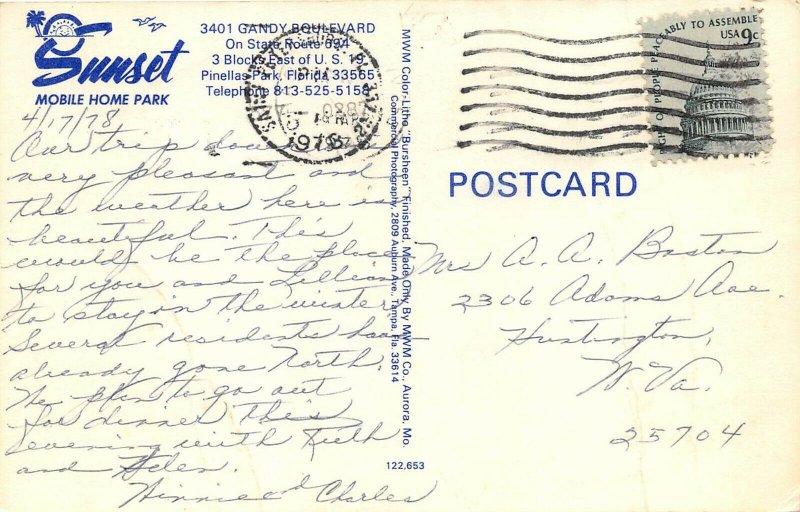 Sunset
MOBILE HOME PARK
3401 GANDY BOULEVARD
On State Route 694
3 Blocks East of U. S. 19
Pinellas Park, Florida 33565
Telephone 813-525-5158
4/17/78
Our trip down
very pleasant and
the weather here is
beautiful. This
would be the place
for you and Lillian
to stay in the winter
Several residents have
already gone North.
We plan to go out
for dinner this
evening with Ruth
and Helen.
Winnie and Charles
MWM Color-Litho "Bursheen" Finished, Made Only By MWM Co., Aurora, Mo.
Commercial Photography, 2809 Auburn Ave., Tampa, Fla. 33614
122,653
1978
PEOPLE PEACEABLY TO ASSEMBLE
USA 9c
POSTCARD
Mrs A. A. Baston
2306 Adams Ave.
Huntington,
W. Va.
25704